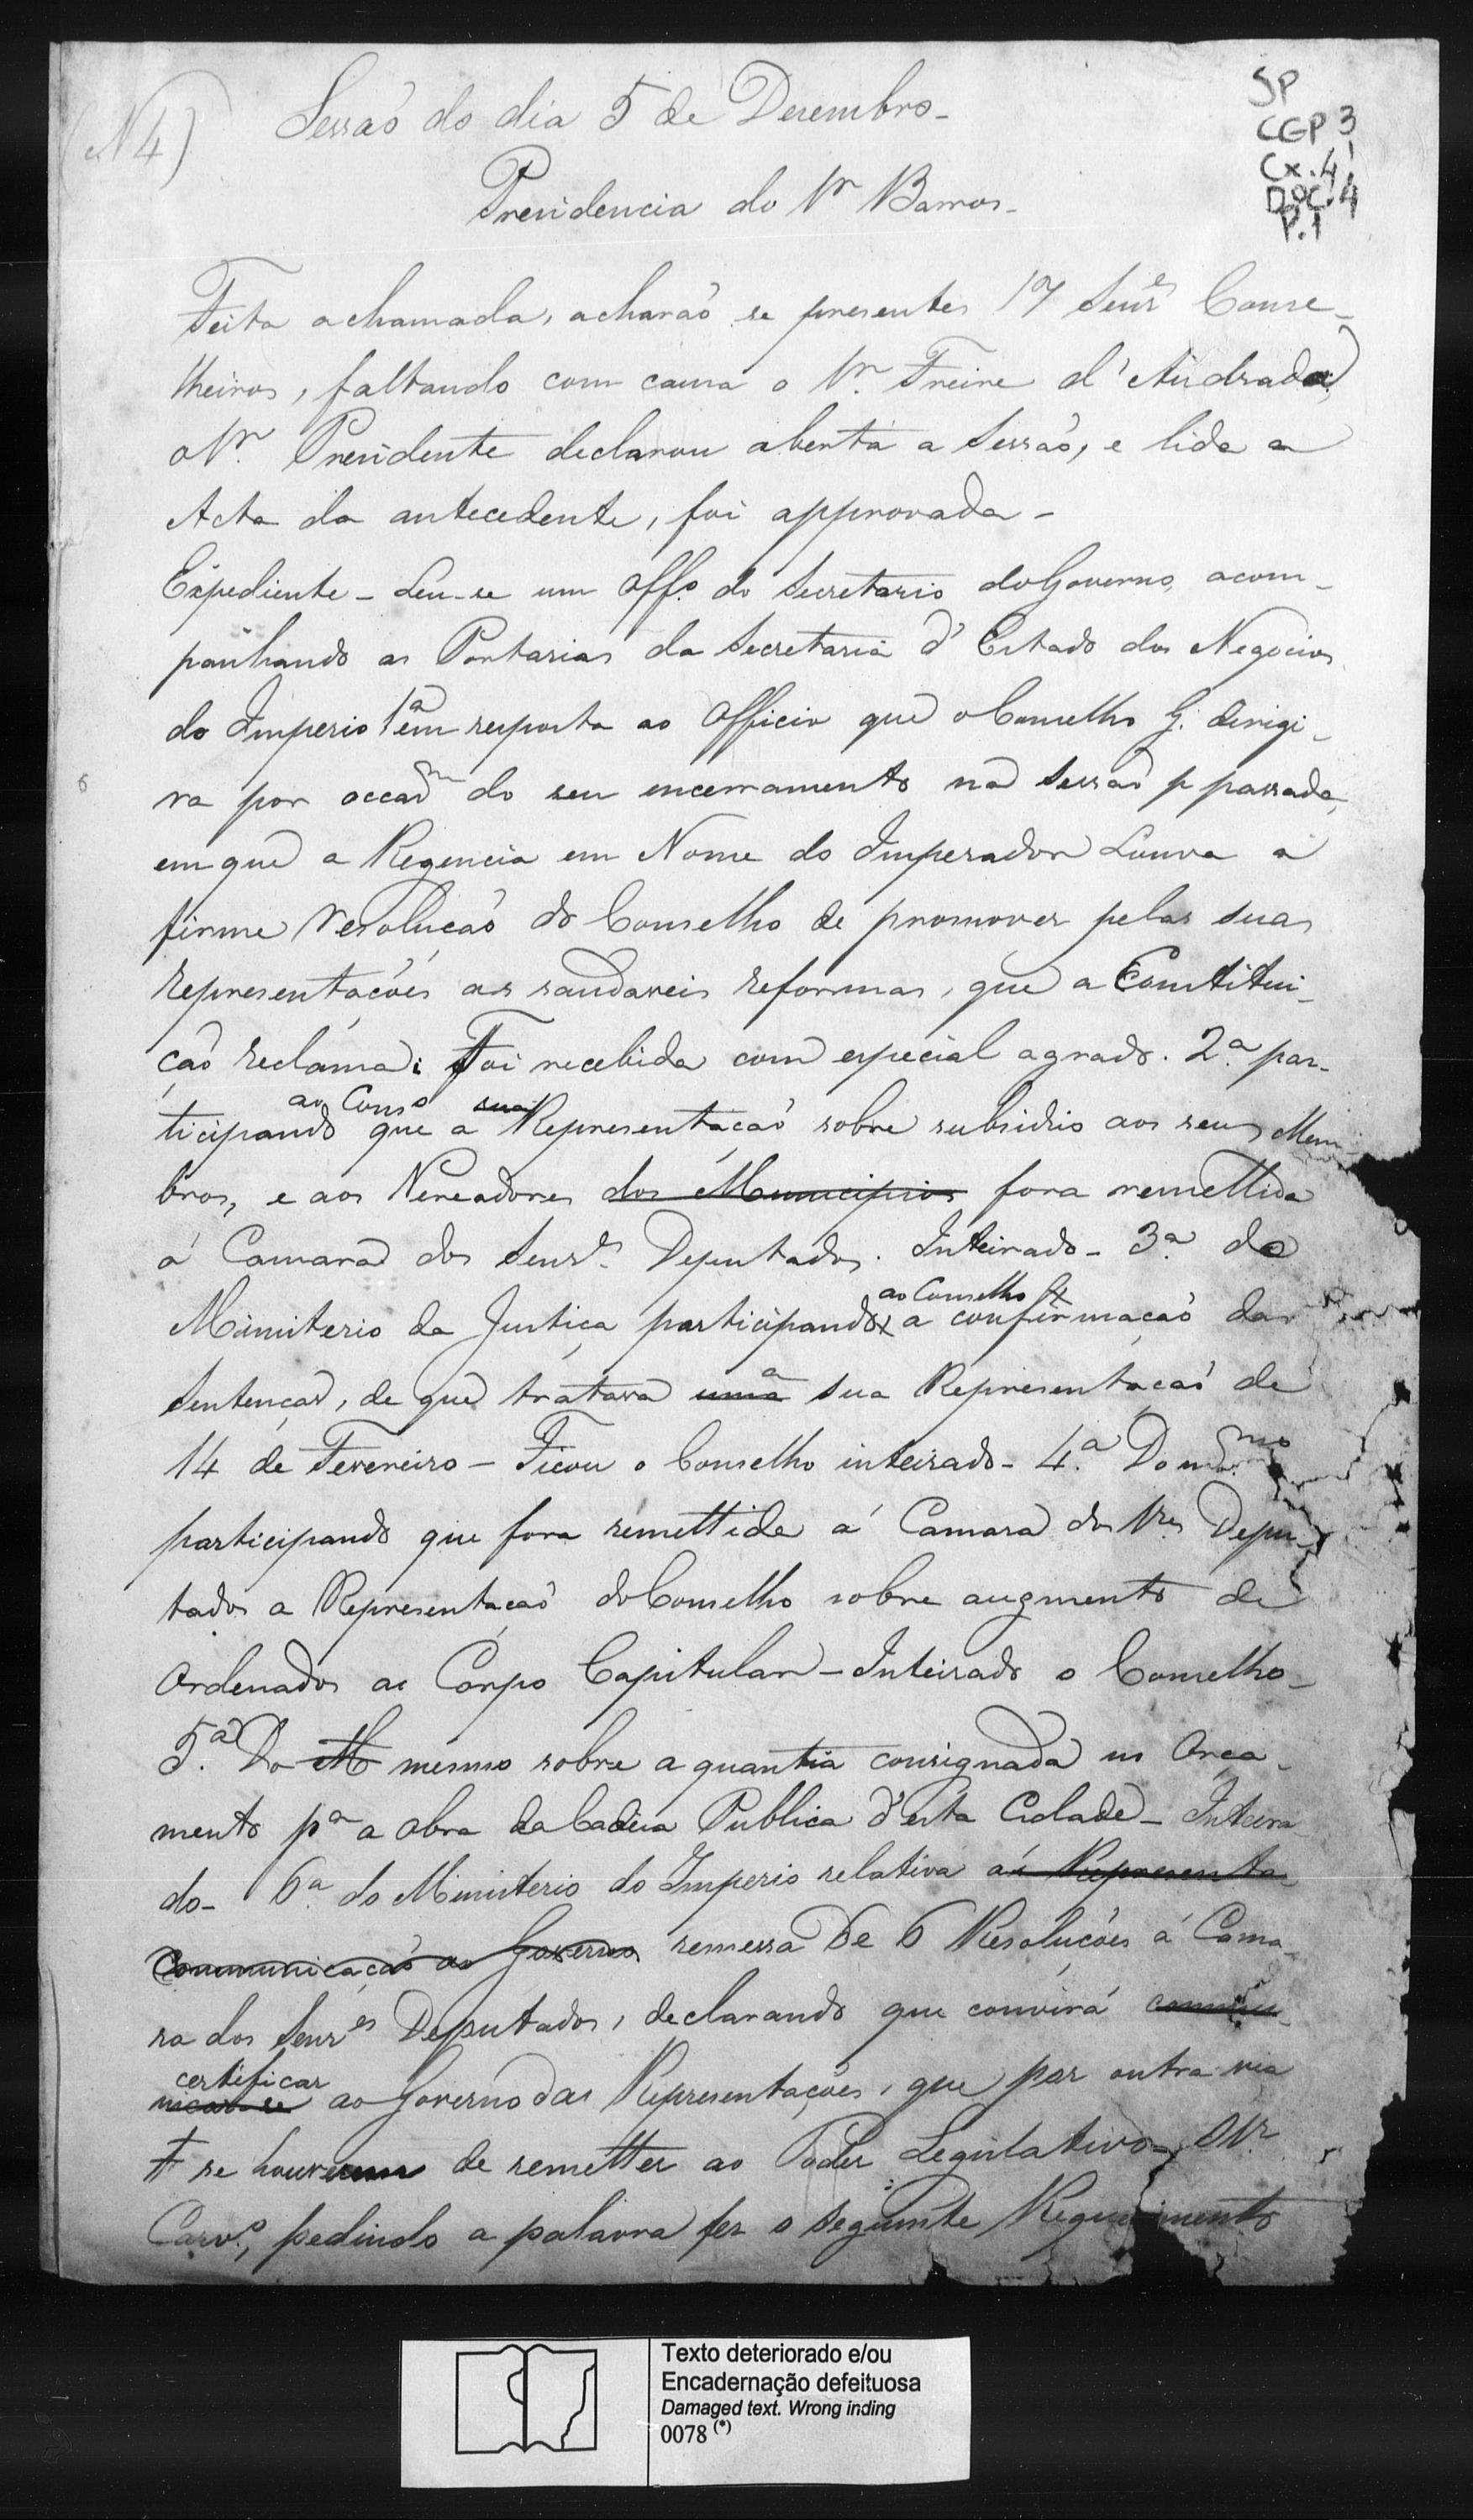 (N 4)
Sessaõ do dia 5 de Dezembro_
SP
CGP 3,
Cx. 4,
DOC. 4
P. 1
Presidencia do Sr Barros_
Feita a chamada, acharaõ se presentes 17 Senres Conse_
lheiros, faltando com causa o Sr. Freire d'Andrada;
o Sr. Presidente declarou aberta a Sessaõ, e lida a
Acta da antecedente, foi approvada_
Expediente _ Leu-se um Offo. do Secretario do Governo, acom_
panhando as Portarias da Secretaria d'Estado dos Negocios
do Imperio 1a em resposta ao Officio que o Conselho G. dirigi_
ra por occam do seu encerramento na Sessaõ p passada,
em que a Regencia em Nome do Imperador Louva a
firme Resoluçaõ do Conselho de promover pelas suas
representaçoẽs as saudaveis reformas, que a Constitui_
çaõ reclama: Foi recebida com especial agrado. 2.a par_
ao Conso sua
ticipando que a Representaçaõ sobre subsidio aos seus Mem
bros, e aos Vereadores dos Municipios fora remettida
á Camara dos Senres. Deputados. Inteirado_ 3.a do
ao Conselho
Ministerio da Justiça participando a confirmaçaõ das
a
Sentenças, de que tratava uma sua Representaçaõ de
14 de Fevereiro _ Ficou o Conselho inteirado_ 4.a Do mesmo
participando que fora remettida á Camara dos Sres. Depu_
tados a Representaçaõ do Conselho sobre augmento de
Ordenados ao Corpo Capitular _ Inteirado o Conselho_
5.a Do M mesmo sobre a quantia consignada no Orça_
mento pa a obra da Cadeia Publica d'esta Cidade _ Inteira_
do_ 6.a do Ministerio do Imperio relativa aś Representa_
Communicaçaõ ao Governo remessa de 6 Resoluçoẽs á Cama_
ra dos Senres Deputados, declarando que convirá commu_
certificar
nicar-se ao Governo das Representaçoẽs, que por outra via
se houverem de remetter ao Poder Legislativo_ O Sr.
Carvo., pedindo a palavra fez o seguinte Requerimento
Texto deteriorado e/ou
Encadernação defeituosa
Damaged text. Wrong inding
0078 (*)